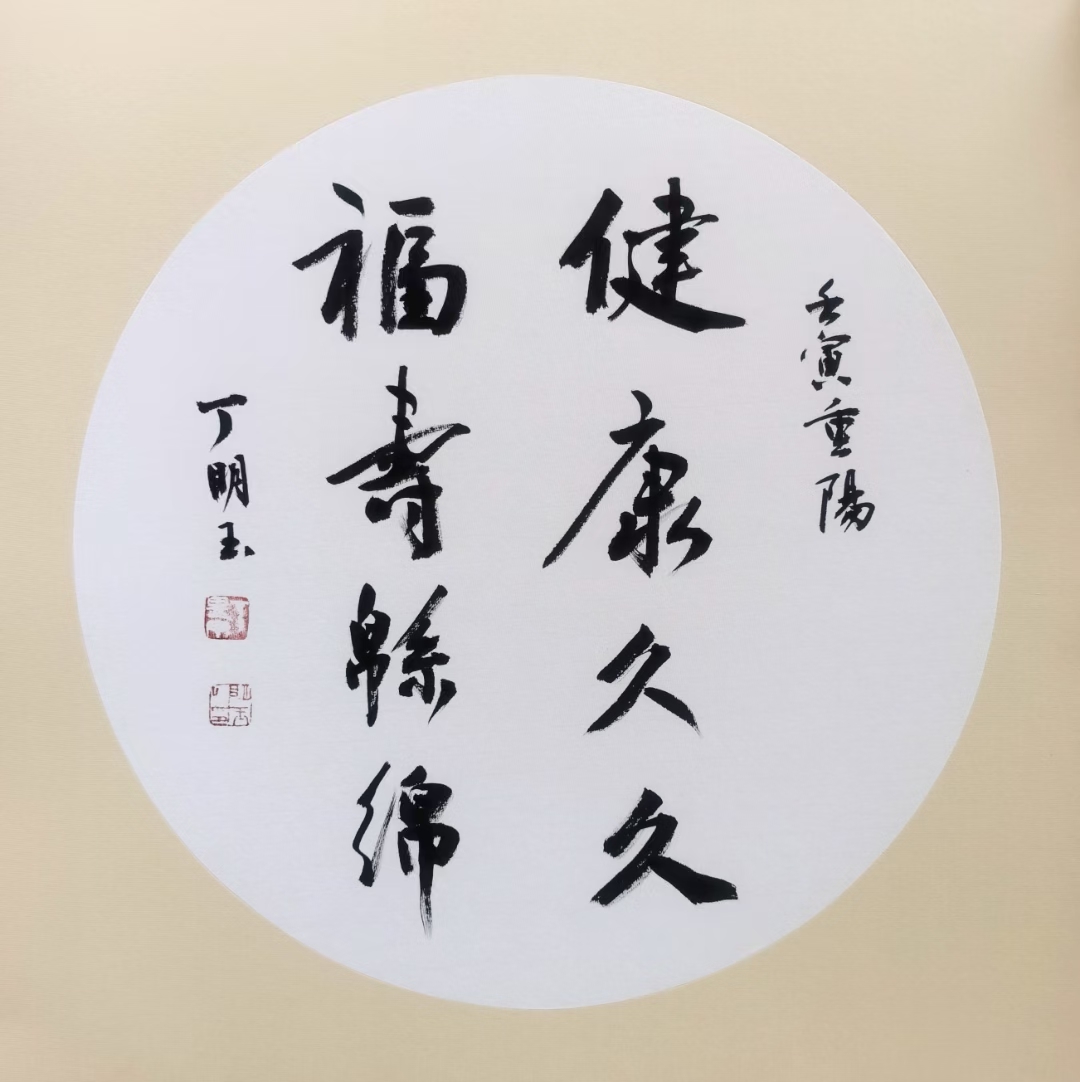 壬寅重陽
健康久久
福壽緜綿
丁明玉